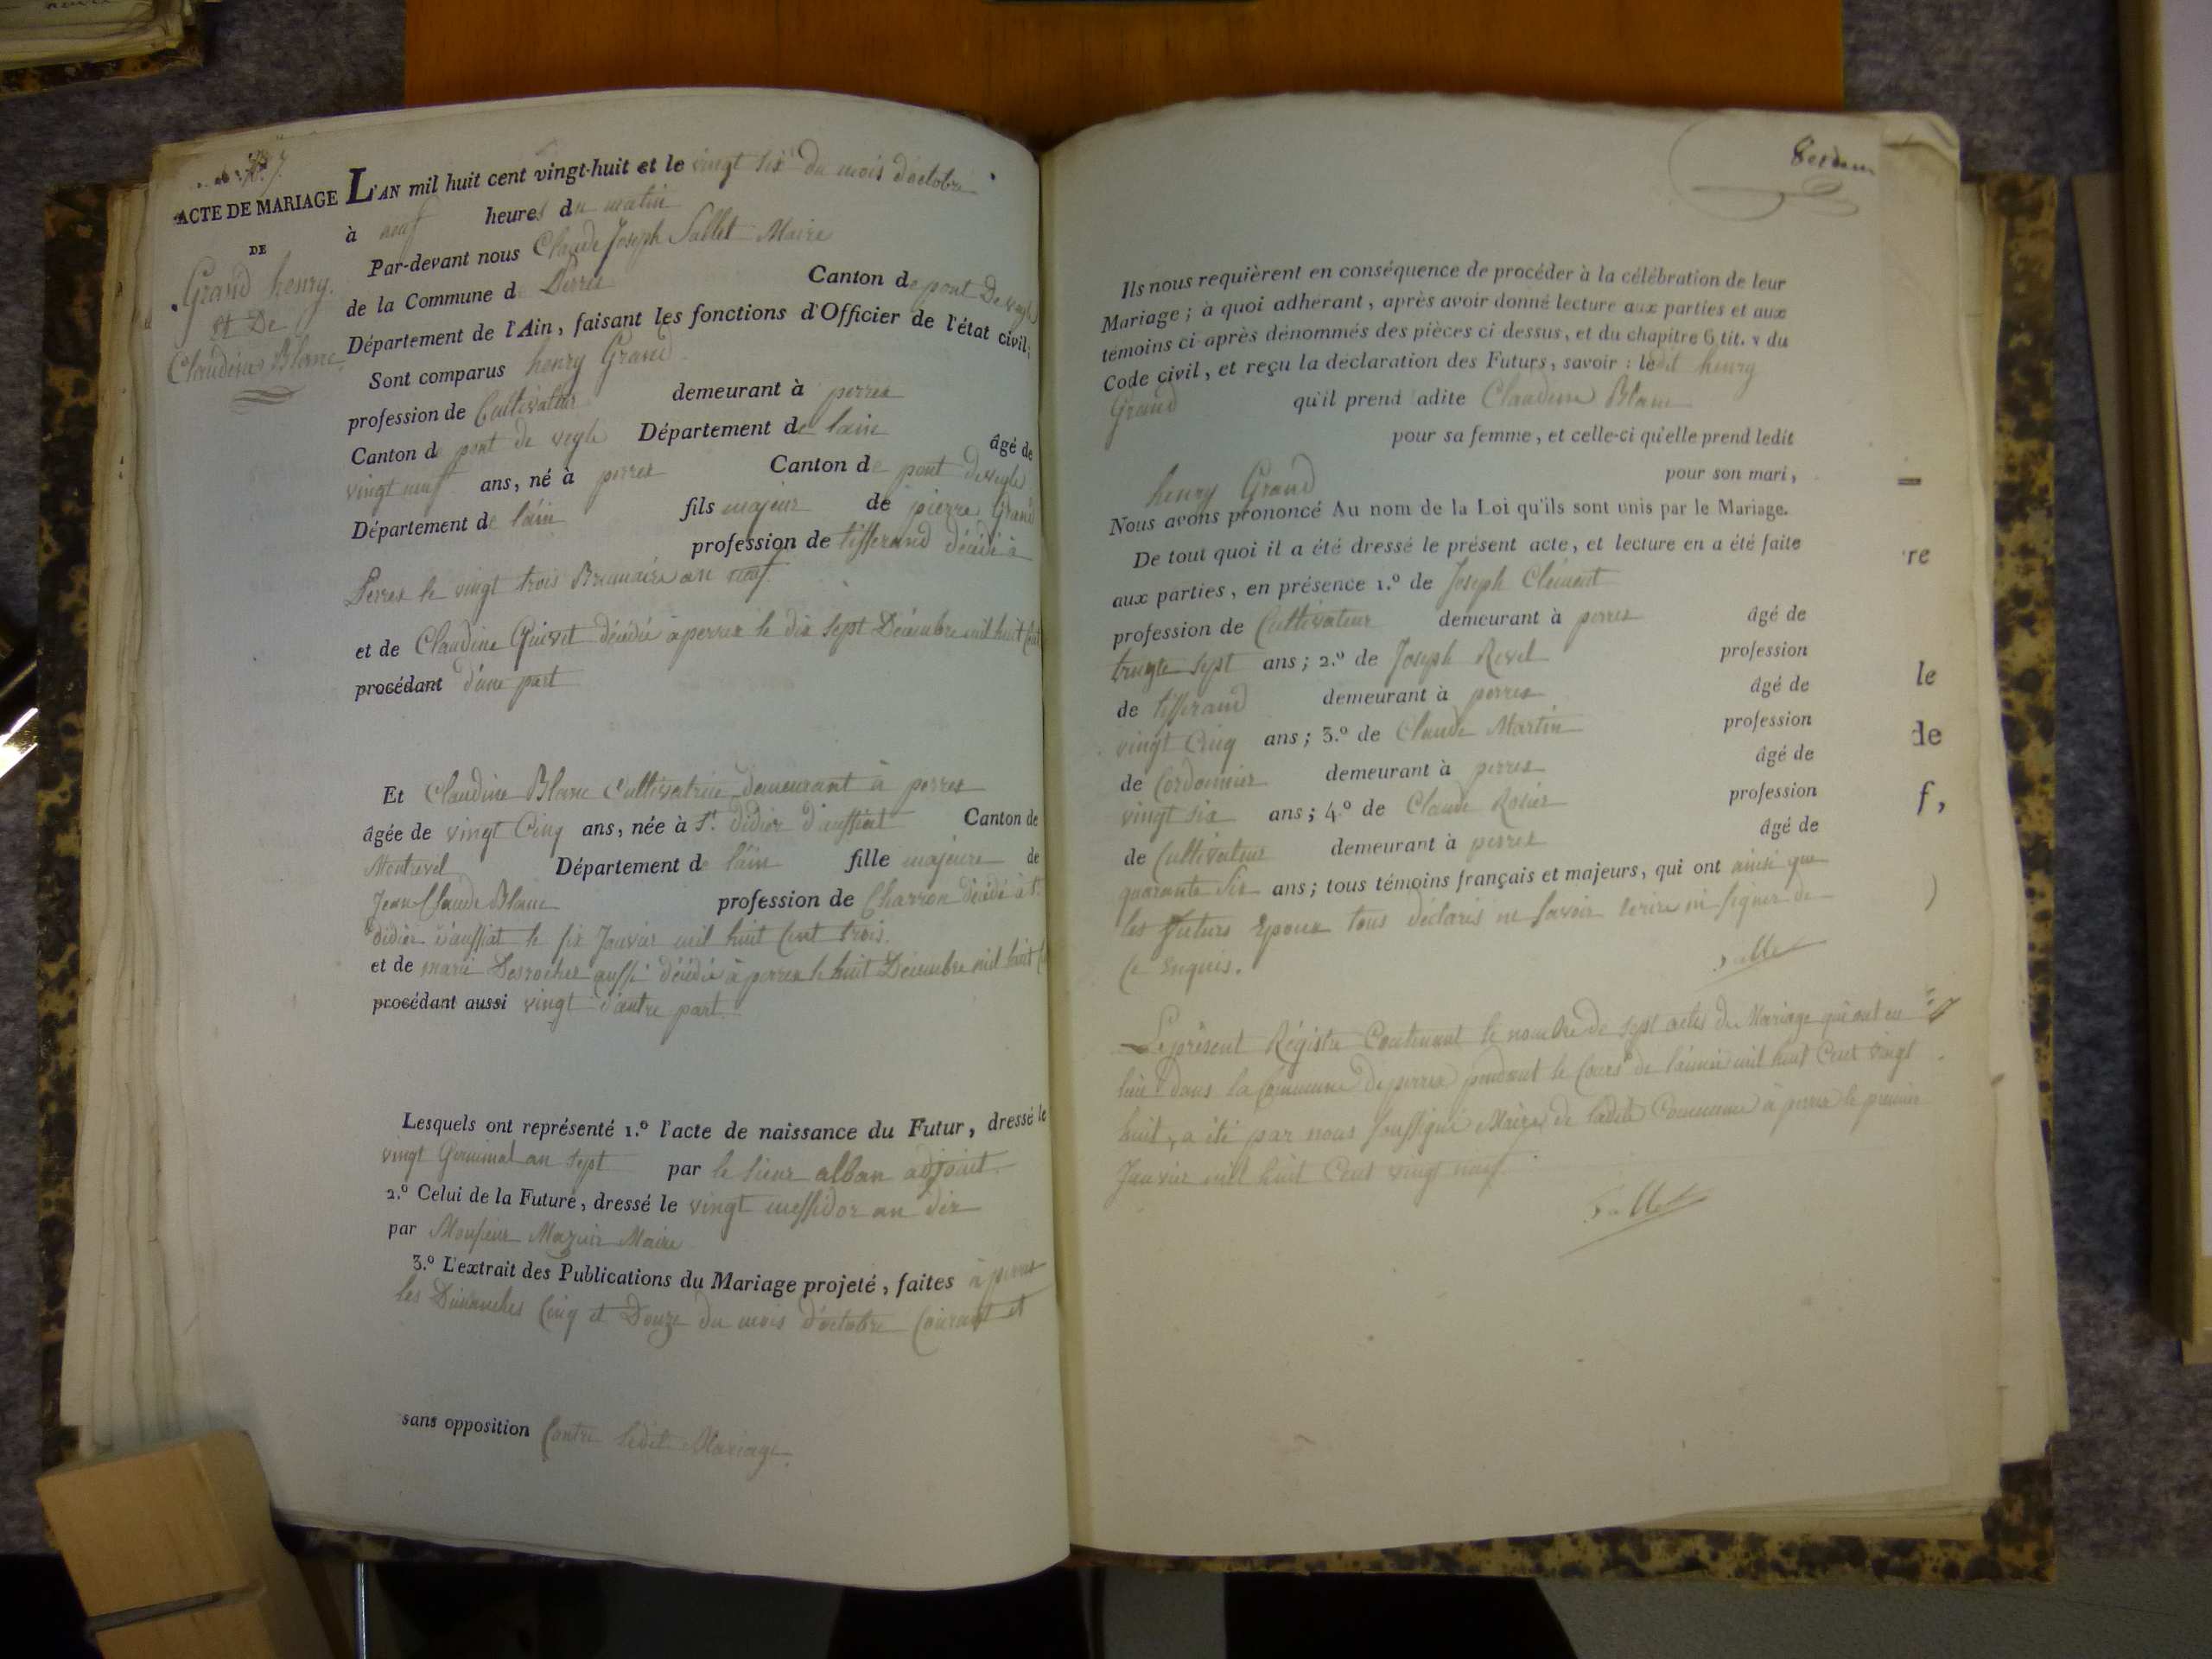 N.° 7.
ACTE DE MARIAGE
DE
Grand henry.
et De
Claudine Blanc
L'AN mil huit cent vingt-huit et le vingt six du mois d'octobre
à neuf heures du matin
Par-devant nous Claude Joseph Sallet Maire
de la Commune de Perrex Canton de pont De vegle
Département de l'Ain, faisant les fonctions d'Officier de l'état civil;
Sont comparus henry Grand
profession de Cultivateur demeurant à perrex
Canton de pont de vegle Département de lain âgé de
vingt neuf ans, né à perrex Canton de pont devegle
Département de lain fils majeur de pierre Grand
profession de tisserand décédé à
Perrex le vingt trois Brumaire an neuf.
et de Claudine Quivet décédée à perrex le dix sept Décembre mil huit Cent
procédant d'une part
Et Claudine Blanc Cultivatrice demeurant à perrex
âgée de vingt Cinq ans, née à St. didier d'aussiat Canton de
Montrevel Département de lain fille majeure de
Jean Claude Blanc profession de Charron décédé à St.
didier d'aussiat le six Janvier mil huit Cent trois.
et de marie Desroches aussi décédée à perrex le huit Décembre mil huit
procédant aussi vingt d'autre part.
Lesquels ont représenté 1.° l'acte de naissance du Futur, dressé le
vingt Germinal an sept par le sieur alban adjoint.
2.° Celui de la Future, dressé le vingt messidor an dix
par Monsieur Mazuir Maire
3.° L'extrait des Publications du Mariage projeté, faites à perrex
les Dimanches Cinq et Douze du mois d'octobre Courant et
sans opposition Contre ledit Mariage.
Ils nous requièrent en conséquence de procéder à la célébration de leur
Mariage; à quoi adhérant, après avoir donné lecture aux parties et aux
témoins ci-après dénommés des pièces ci dessus, et du chapitre 6 tit. v du
Code civil, et reçu la déclaration des Futurs, savoir: ledit henry
Grand qu'il prend ladite Claudine Blanc
pour sa femme, et celle-ci qu'elle prend ledit
henry Grand pour son mari,
Nous avons prononcé Au nom de la Loi qu'ils sont unis par le Mariage.
De tout quoi il a été dressé le présent acte, et lecture en a été faite
aux parties, en présence 1.° de Joseph Clément
profession de Cultivateur demeurant à perrex âgé de
trente sept ans; 2.° de Joseph Revel profession
de tisserand demeurant à perrex âgé de
vingt Cinq ans; 3.° de Claude Martin profession
de Cordonnier demeurant à perrex âgé de
vingt six ans; 4.° de Claude Rosier profession
de Cultivateur demeurant à perrex âgé de
quarante six ans; tous témoins français et majeurs, qui ont ainsi que
les futurs Epoux tous déclarés ne savoir écrire ni signer de
Ce Enquis.
Sallet
Le présent Régistre Contenant le nombre de sept actes de Mariage qui ont eu
lieu dans la Commune de perrex pendant le Cours de l'année mil huit Cent vingt
huit, a été par nous soussigné Maire de ladite Commune à perrex le premier
Janvier mil huit Cent vingt neuf.
Sallet
re
le
de
f,